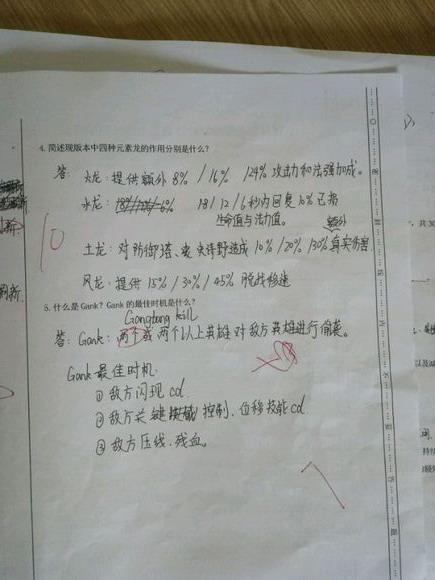 4. 简述现版本中四种元素龙的作用分别是什么?
答: 火龙: 提供额外 8% / 16% /24% 攻击力和法强加成。
水龙: 18 / 12 / 6秒内回复 10% 已损
生命值与法力值。
额外
10
土龙: 对防御塔、史诗野怪造成 10% / 20% /30% 真实伤害
风龙: 提供 15% / 30% / 45% 脱战移速
5. 什么是 Gank? Gank 的最佳时机是什么?
Gangbang kill
答: Gank: 两个或两个以上英雄对敌方英雄进行偷袭。
Gank 最佳时机
① 敌方闪现 cd
② 敌方关键控制、位移技能cd
③ 敌方压线、残血。
7